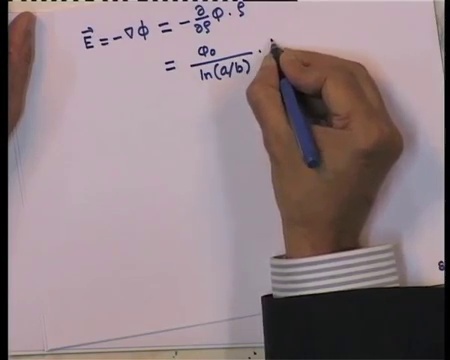 E⃗ = -∇Φ = -∂/∂ρ Φ · ρ
= Φ₀/ln(a/b) ·